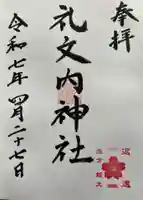 奉拝
礼文内神社
令和七年四月二十七日